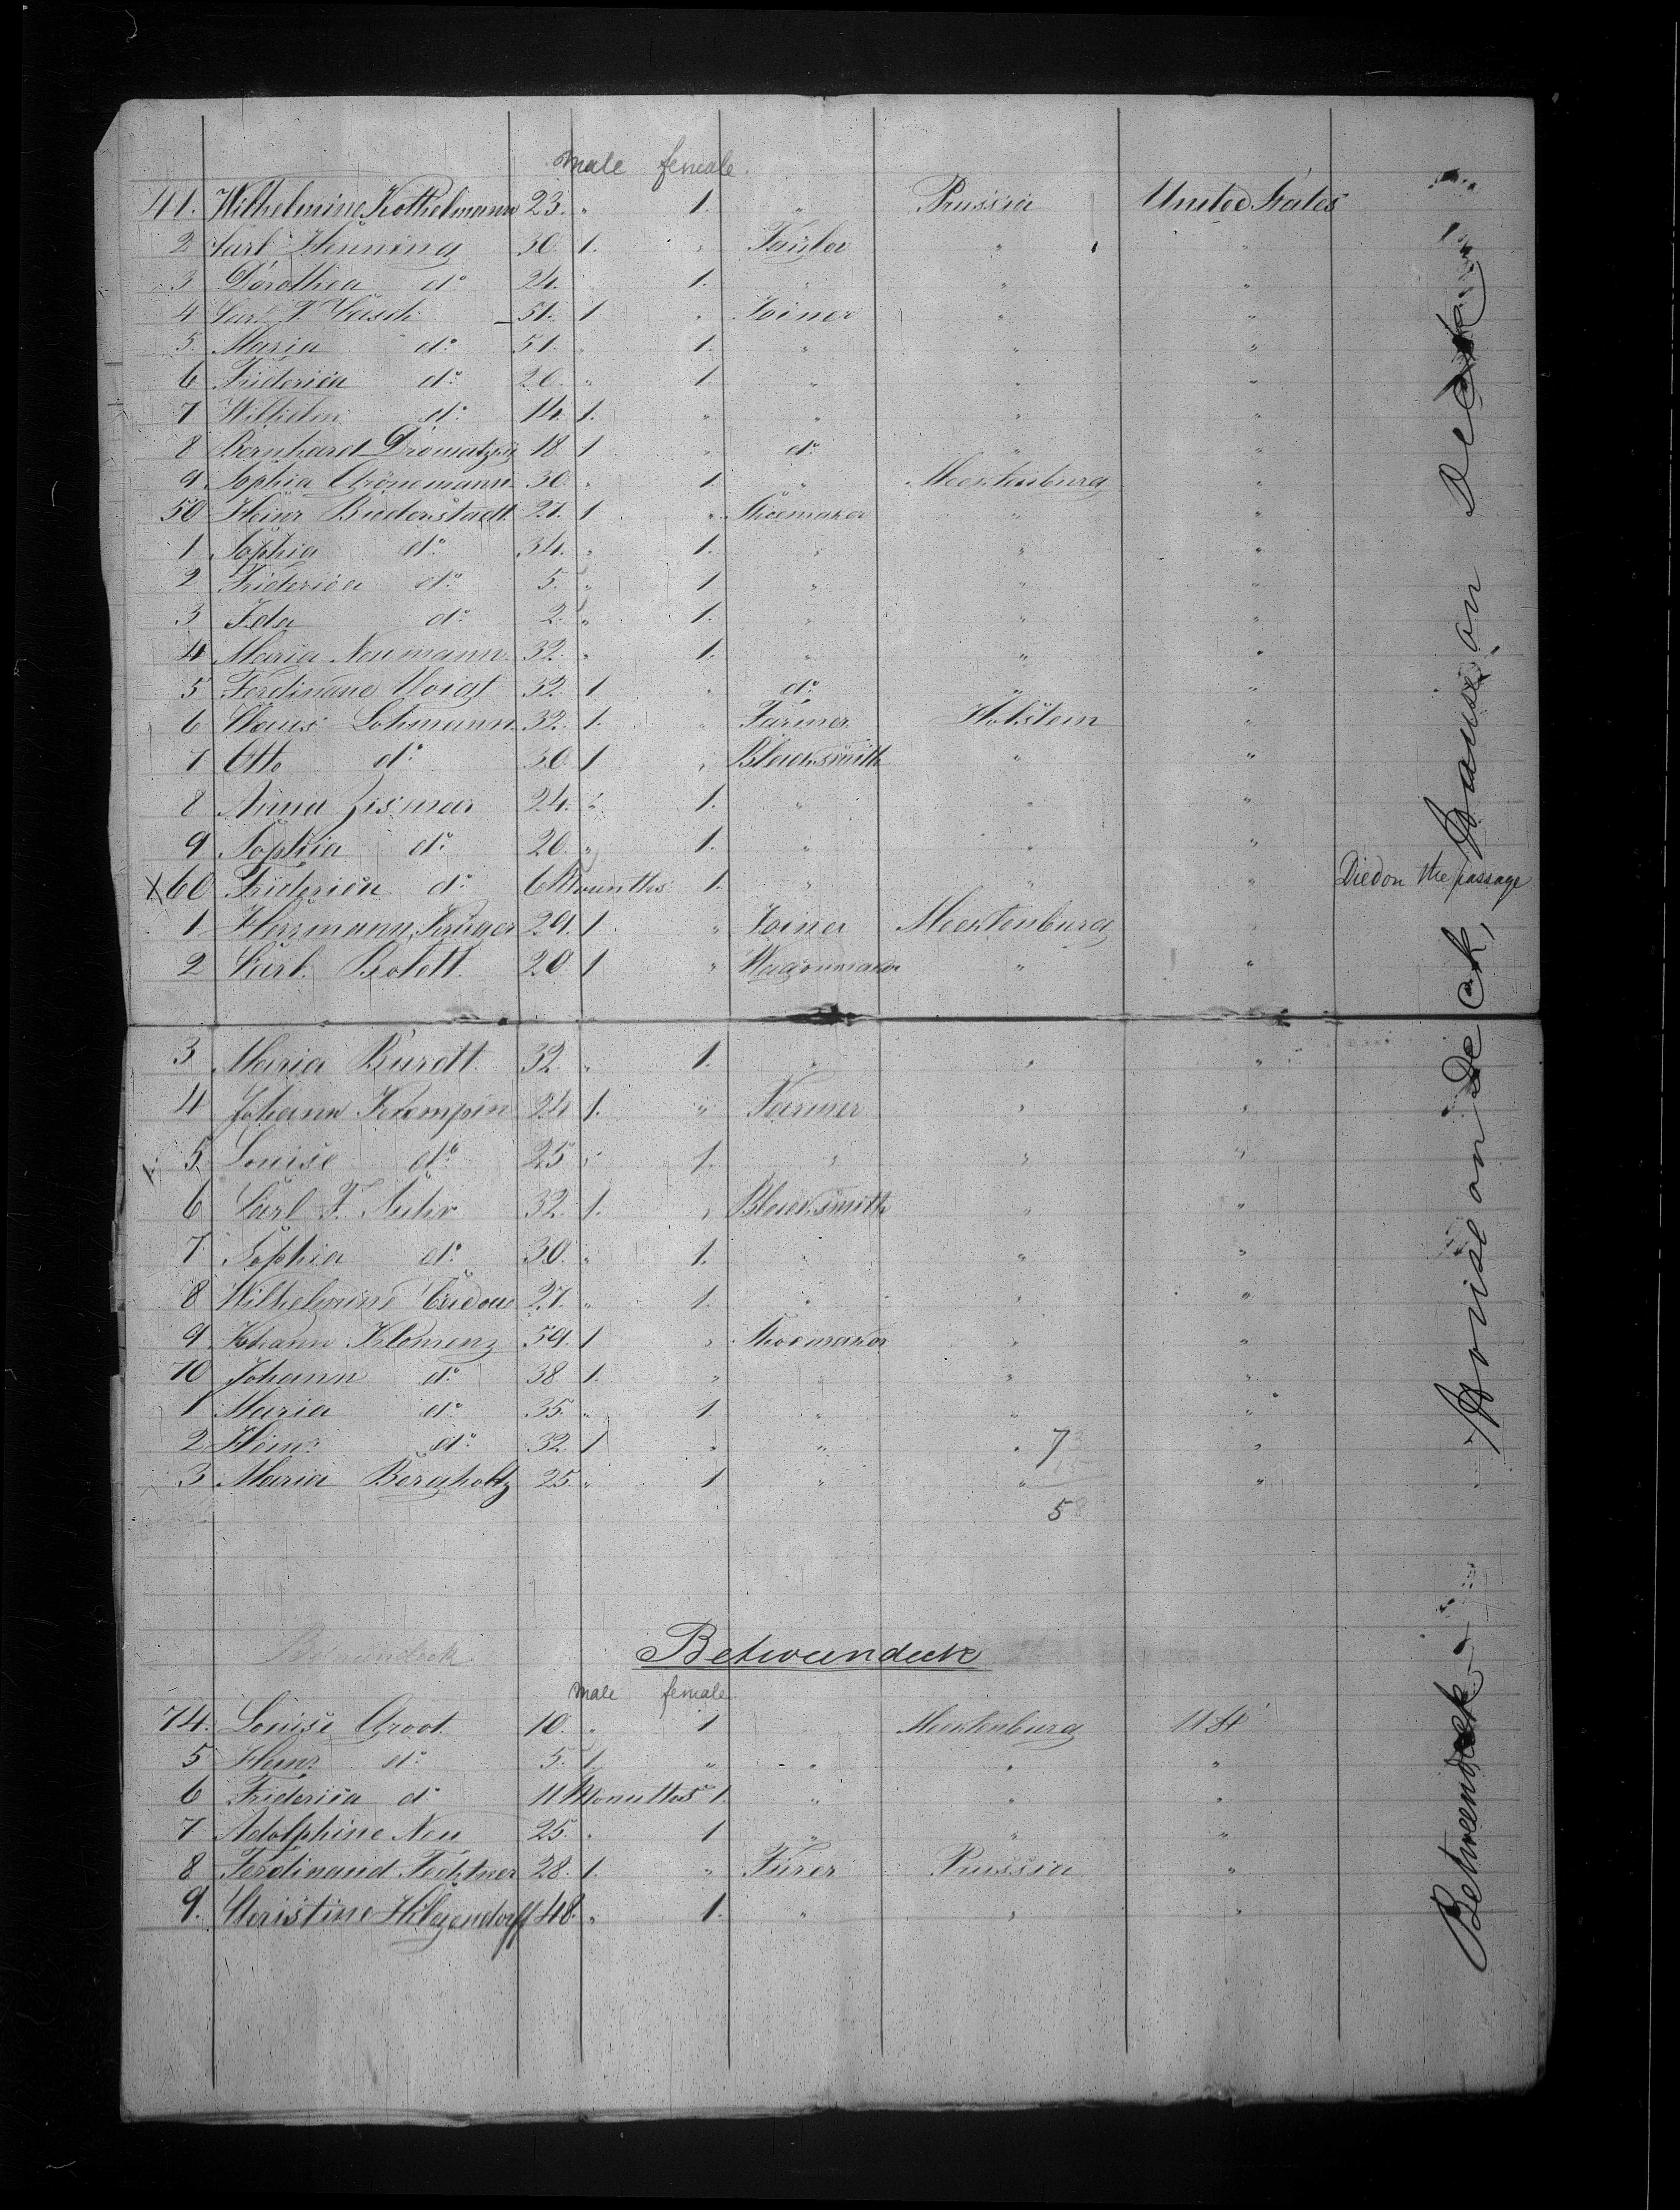 male female.
41. Wilhelmine Kothelmann 23. " 1. " Prussia United States
2 Carl Henning 30. 1. " Tailor " "
3 Dorothea do 24. 1. " " "
4 Carl F. 51. 1 " Joiner " "
5. Maria do 51. " 1. " " "
6 Friderica do 20. " 1 " " "
7 Wilhelm do 14. 1. " " " "
8 Bernhard 18 1 " do " "
9 Sophia Grönemann 30. " 1. " Mecklenburg "
50 Heinr Biederstaedt 27. 1 " Shoemaker " "
1 Sophia do 34. " 1. " " "
2 Friderica do 5. " 1 " " "
3 Ida do 2. " 1. " " "
4 Maria Neumann 32. " 1. " " "
5 Ferdinand Voigt 32. 1 " do " "
6 Claus Lohmann 32. 1. " Farmer Holstein "
7 Otto do 30. 1 " Blacksmith " "
8 Anna Zismar 24. " 1. " " "
9 Sophia do 20. " 1. " " "
X 60 Friderica do 6 Mounths 1. " " " Died on the passage
1 Herrmann Krüger 29. 1 " Joiner Mecklenburg "
2 Carl Boldt 20 1 " Wagonmaker " "
3 Maria Burdt 32. " 1. " " "
4 Johann Krempin 24 1. " Farmer " "
5 Louise do 25 " 1. " " "
6 Carl F. 32. 1. " Blacksmith " "
7 Sophia do 30. " 1. " " "
8 Wilhelmine 27. " 1. " " "
9 Johann Klemenz 59. 1 " Shoemaker " "
70 Johann do 38 1. " " " "
1 Maria do 35. " 1. " " "
2 Heinr do 32. 1 " " " 73 "
3 Maria Bergholtz 25. " 1 " " 15 "
58
Betweendeck
Betweendeck
male female
74. Louise Groot 10. " 1 " Mecklenburg U St
5 Heinr do 5. 1. " " " "
6 Friderica do 11 Mounthes 1. " " "
7 Adolphine Neu 25. " 1 " " "
8 Ferdinand Fechtner 28. 1. " Prussia "
9. Christine Hilgendorff 48. " 1. " " "
Betweendeck
House on Deck,
House, on Deck